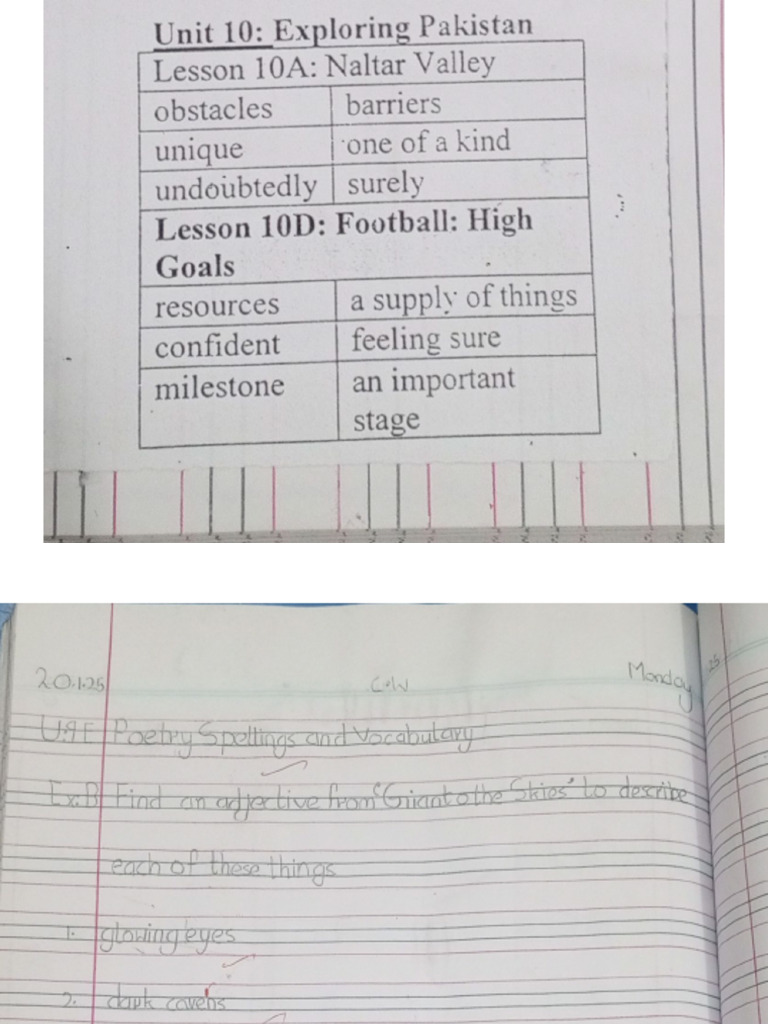 Unit 10: Exploring Pakistan
Lesson 10A: Naltar Valley
obstacles barriers
unique one of a kind
undoubtedly surely
Lesson 10D: Football: High
Goals
resources a supply of things
confident feeling sure
milestone an important
stage
20.1.25 C.W Monday
U.9E Poetry Spellings and Vocabulary
Ex.B Find an adjective from the Skies" to describe
each of these things
1. glowing eyes
2. dark